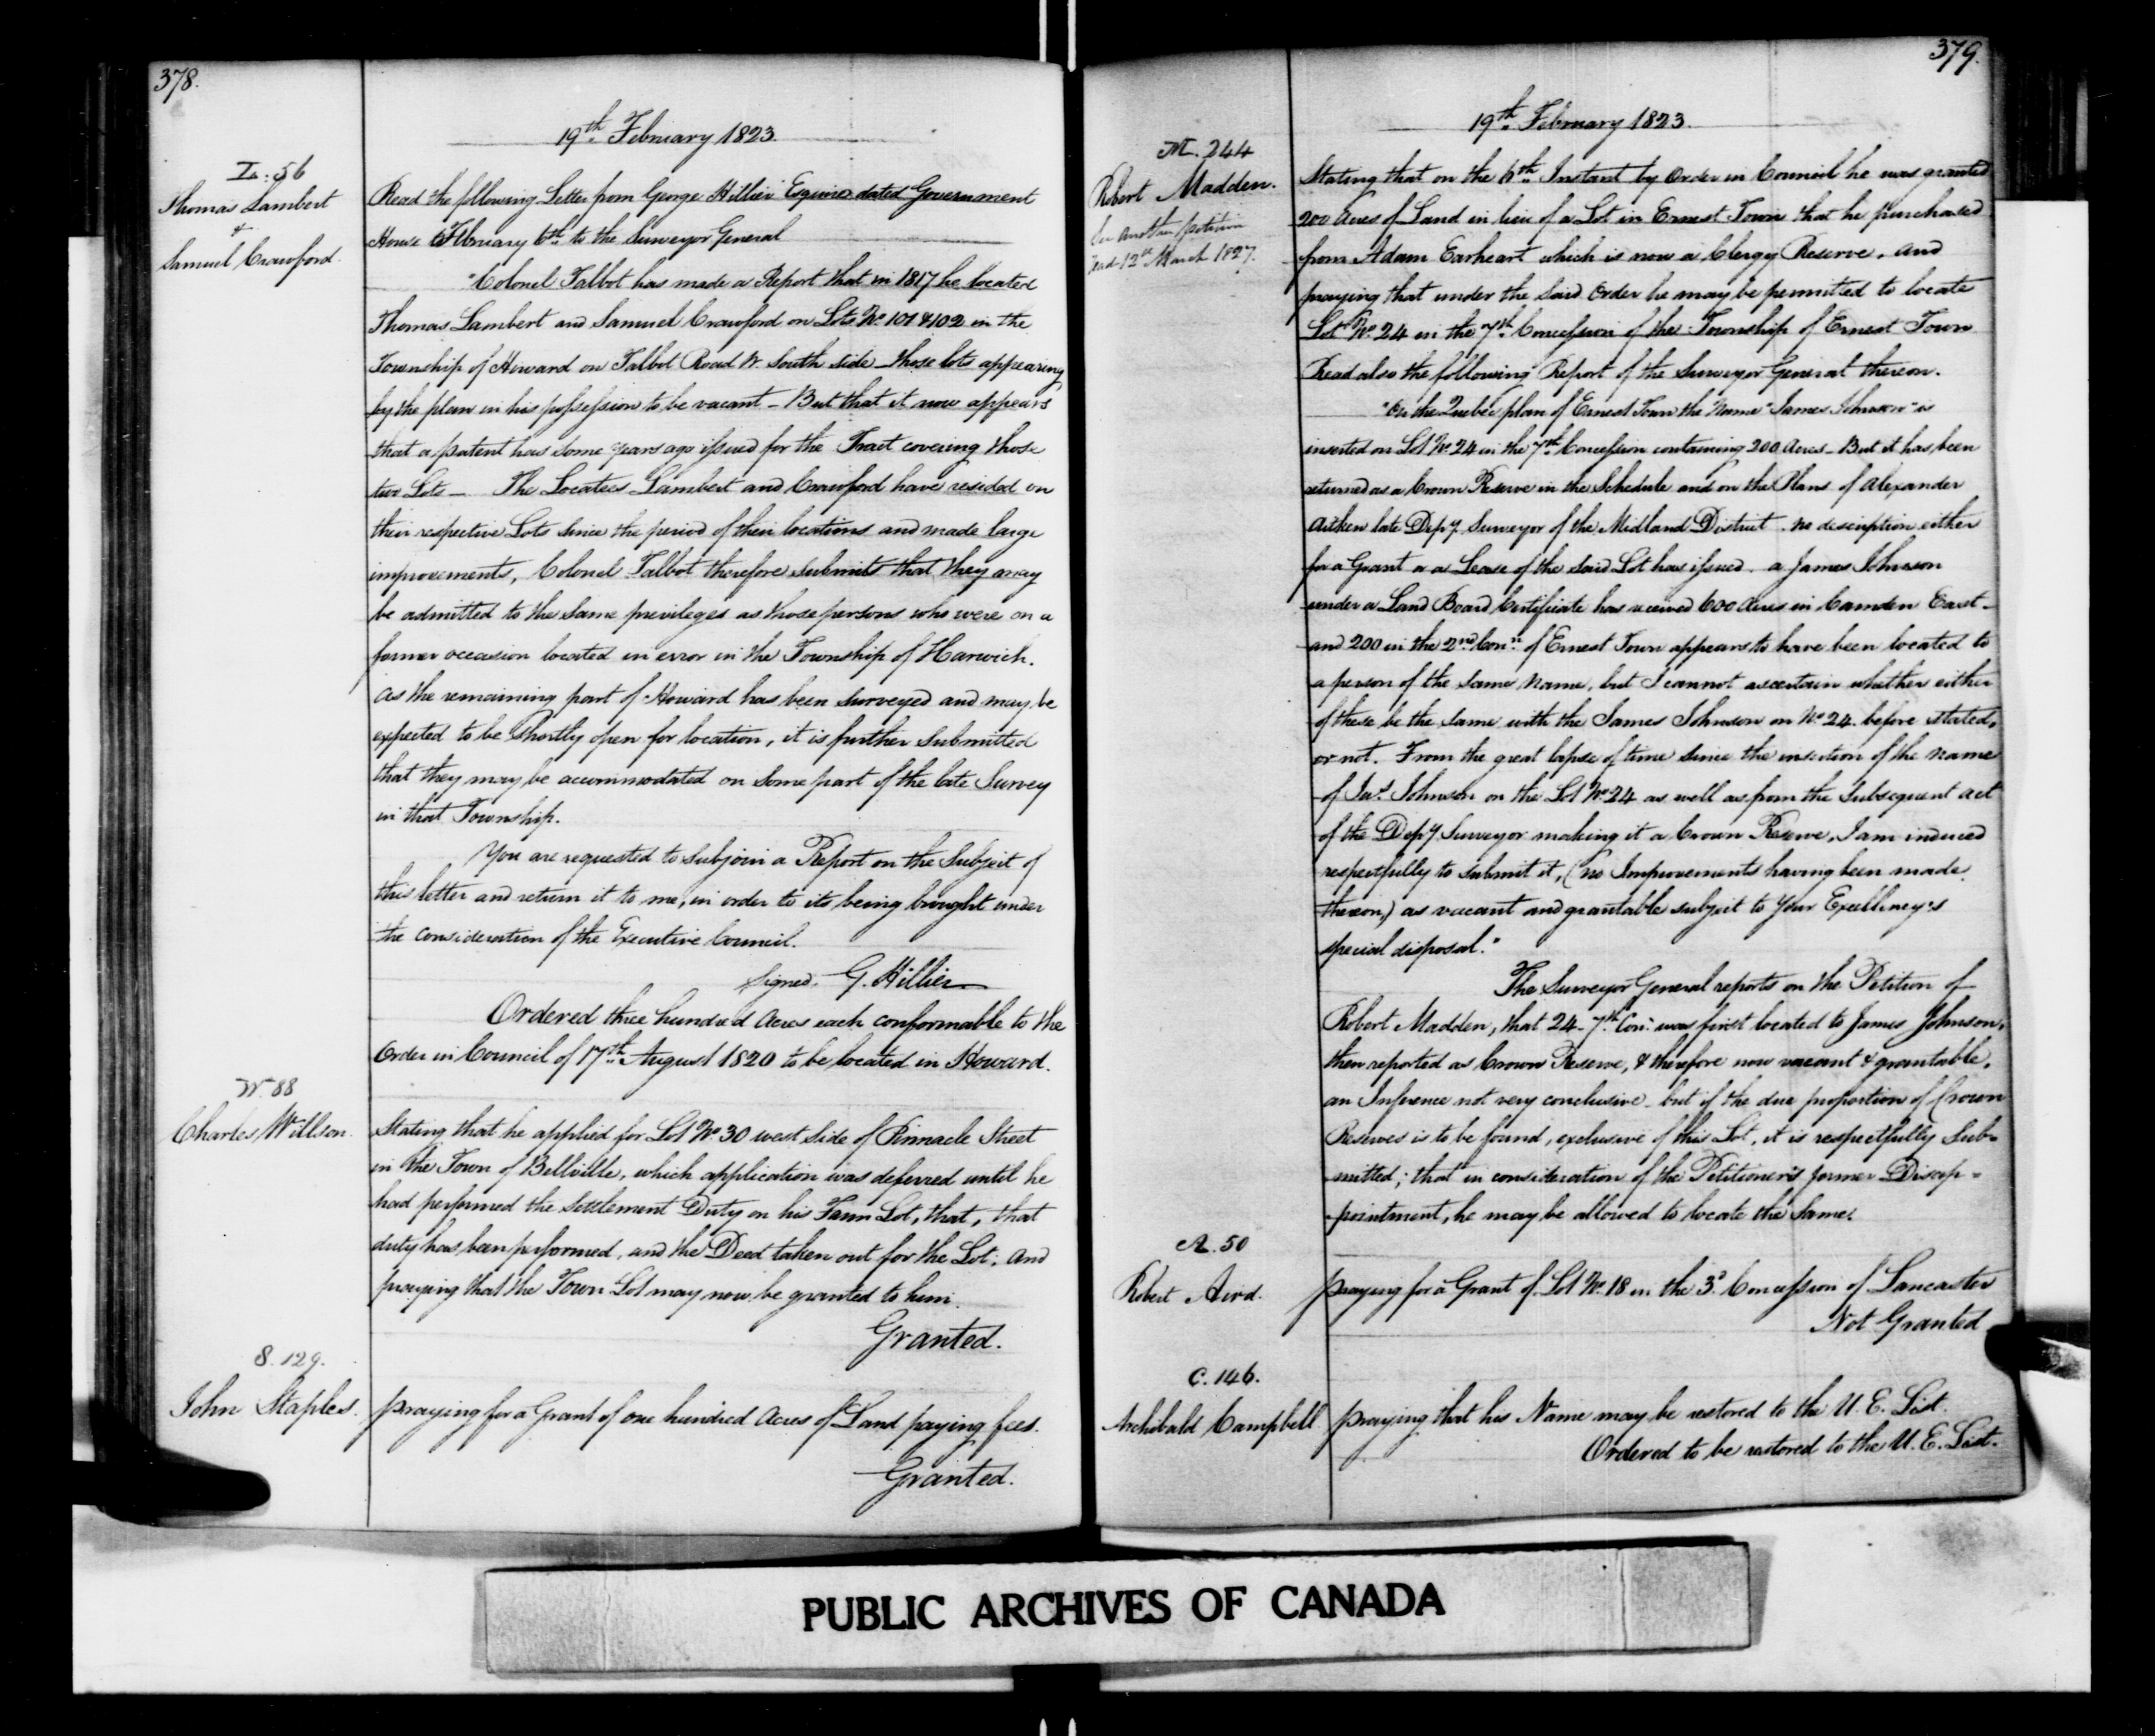 378.
19th February 1823.
L. 56
Thomas Lambert
&
Samuel Crawford.
Read the following Letter from George Hillier Esquire dated Government
House 6 February 6th to the Surveyor General
"Colonel Talbot has made a Report that in 1817 he located
Thomas Lambert and Samuel Crawford on Lots No. 101 & 102 in the
Township of Howard on Talbot Road W. South side - those lots appearing
by the plan in his possession to be vacant - But that it now appears
that a patent has some years ago issued for the Tract covering those
two Lots - The Locatees Lambert and Crawford have resided on
their respective Lots since the period of their locations and made large
improvements, Colonel Talbot therefore submits that they may
be admitted to the same privileges as those persons who were on a
former occasion located in error in the Township of Harwich.
As the remaining part of Howard has been surveyed and may be
expected to be shortly open for location, it is further submitted
that they may be accommodated on some part of the late Survey
in that Township.
You are requested to subjoin a Report on the Subject of
this letter and return it to me, in order to its being brought under
the consideration of the Executive Council.
Signed. G. Hillier
Ordered three hundred Acres each conformable to the
Order in Council of 17th August 1820 to be located in Howard.
W. 88
Charles Willson.
Stating that he applied for Lot No 30 west side of Pinnacle Street
in the Town of Bellville, which application was deferred until he
had performed the Settlement Duty on his Farm Lot, that, that
duty has been performed, and the Deed taken out for the Lot; and
praying that the Town Lot may now be granted to him.
Granted.
S. 129.
John Staples.
praying for a Grant of one hundred Acres of Land paying fees.
Granted.
379.
19th February 1823.
M. 244
Robert Madden.
See another petition
read 12th March 1827.
Stating that on the 6th Instant by Order in Council he was granted
200 Acres of Land in lieu of a Lot in Ernest Town that he purchased
from Adam Earheart which is now a Clergy Reserve, and
praying that under the said Order he may be permitted to locate
Lot No. 24 in the 7th Concession of the Township of Ernest Town
Read also the following Report of the Surveyor General thereon.
"On the Quebec plan of Ernest Town the Name "James Johnson" is
inserted on Lot No. 24 in the 7th Concession containing 200 Acres - But it has been
returned as a Crown Reserve in the Schedule and on the Plans of Alexander
Aitken late Depy Surveyor of the Midland District. no description either
for a Grant or a Lease of the said Lot has issued. a James Johnson
under a Land Board Certificate has received 600 Acres in Camden East -
and 200 in the 2nd Con:n of Ernest Town appears to have been located to
a person of the same name, but I cannot ascertain whether either
of these be the same with the James Johnson on No 24. before stated,
or not. From the great lapse of time since the insertion of the name
of Jas. Johnson on the Lot No 24 as well as from the subsequent act
of the Depy Surveyor making it a Crown Reserve, I am induced
respectfully to submit it, (no Improvements having been made
thereon,) as vacant and grantable subject to Your Excellency's
special disposal."
The Surveyor General reports on the Petition of
Robert Madden, that 24 - 7th Con: was first located to James Johnson,
then reported as Crown Reserve, & therefore now vacant & grantable,
an Inference not very conclusive - but if the due proportion of Crown
Reserves is to be found, exclusive of this Lot, it is respectfully Sub-
mitted; that in consideration of the Petitioner's former Disap-
pointment, he may be allowed to locate the same.
A. 50
Robert Aird.
praying for a Grant of Lot No. 18 in the 3d Concession of Lancaster
Not Granted
C. 146.
Archibald Campbell
praying that his Name may be restored to the U. E. List.
Ordered to be restored to the U. E. List.
PUBLIC ARCHIVES OF CANADA